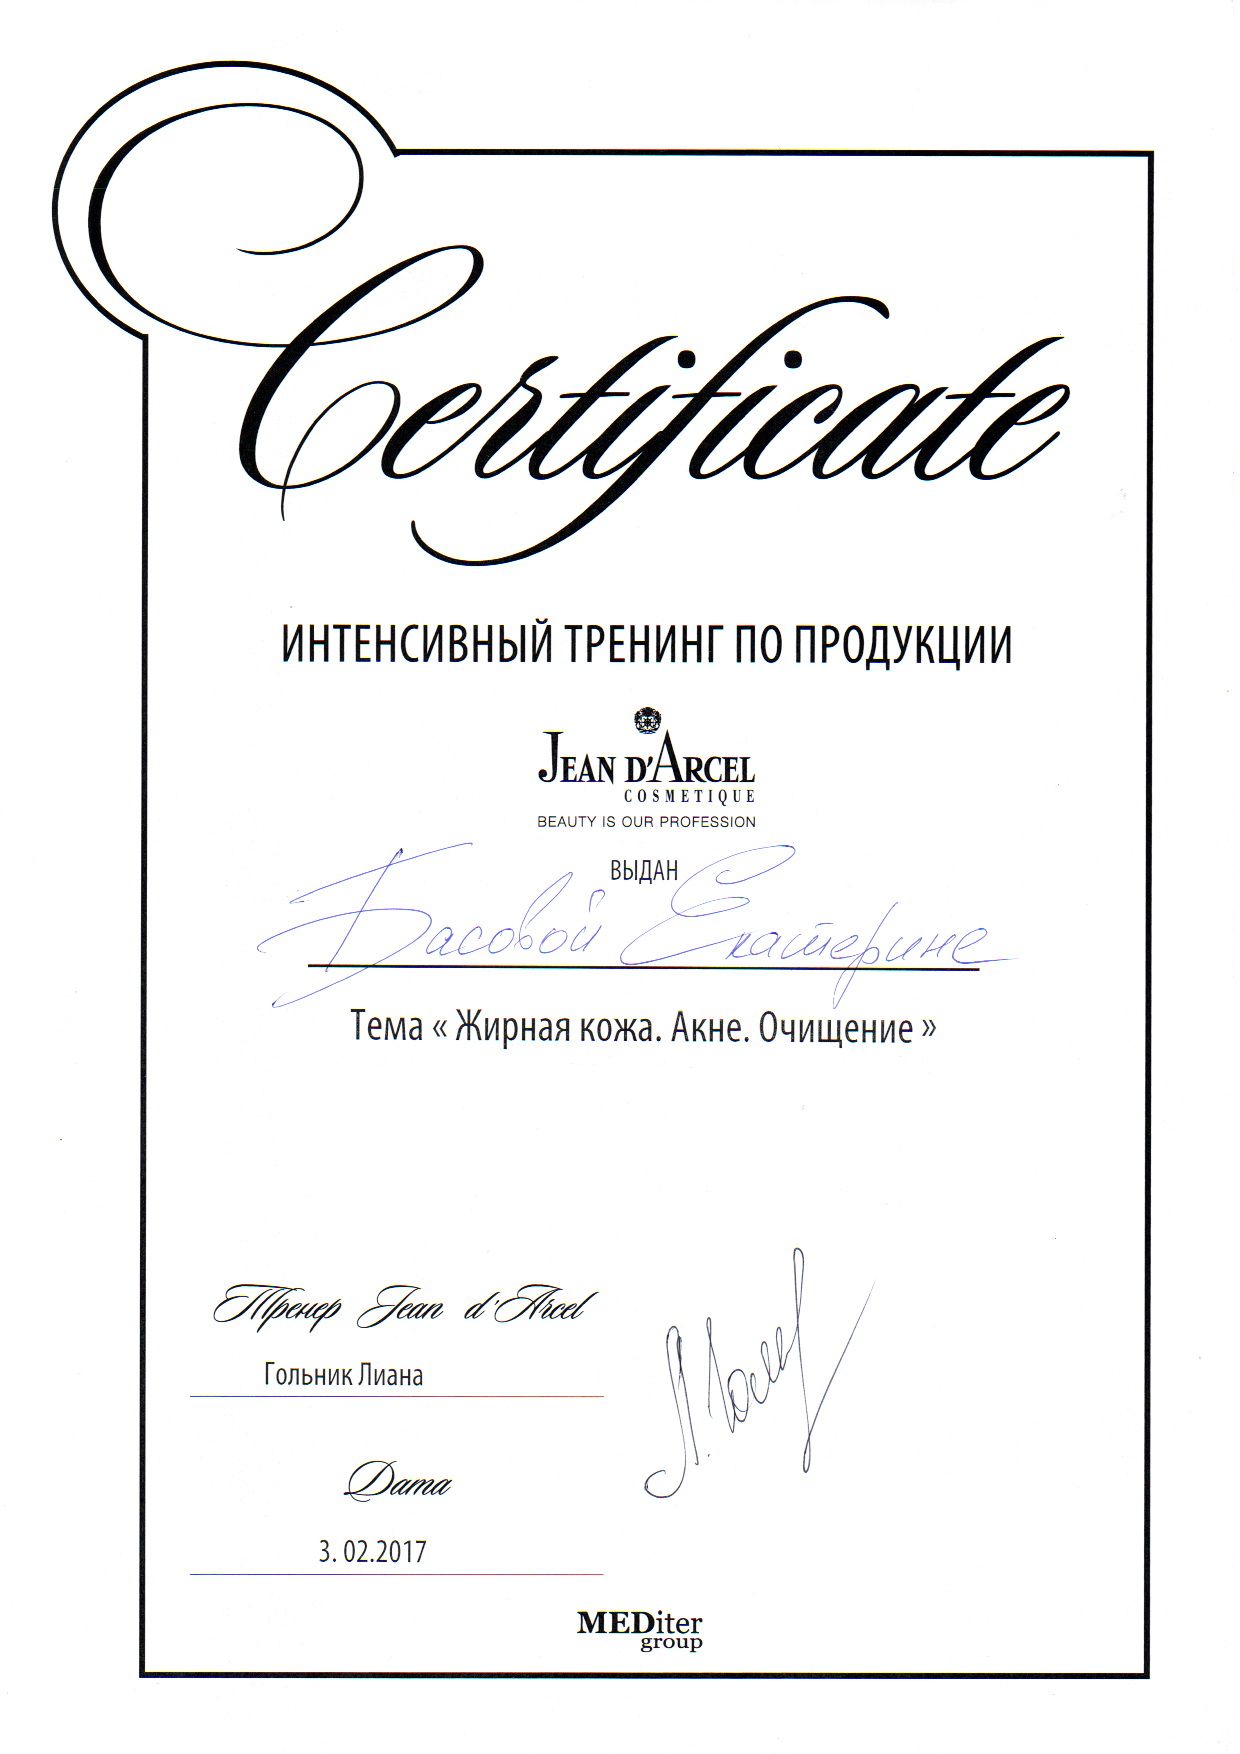 Certificate
ИНТЕНСИВНЫЙ ТРЕНИНГ ПО ПРОДУКЦИИ
JEAN D'ARCEL
COSMETIQUE
BEAUTY IS OUR PROFESSION
ВЫДАН
Басовой Екатерине
Тема « Жирная кожа. Акне. Очищение »
Тренер Jean d'Arcel
Гольник Лиана
Дата
3. 02.2017
MEDiter
group